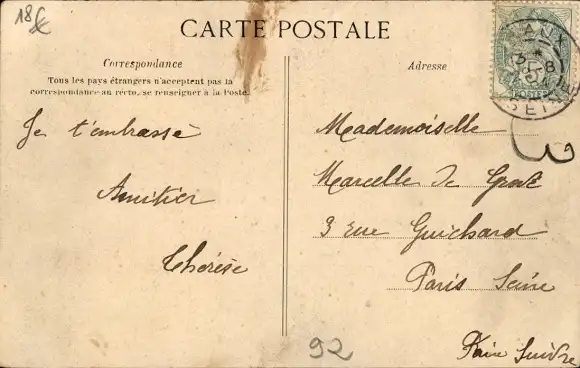 18€
CARTE POSTALE
Correspondance
Tous les pays étrangers n'acceptent pas la
correspondance au recto, se renseigner à la Poste.
Je t'embrasse
Amitier
Thérèse
Adresse
Mademoiselle
Marcelle de
3 rue Guichard
Paris Seine
Faire Suivre
92
3
POSTES